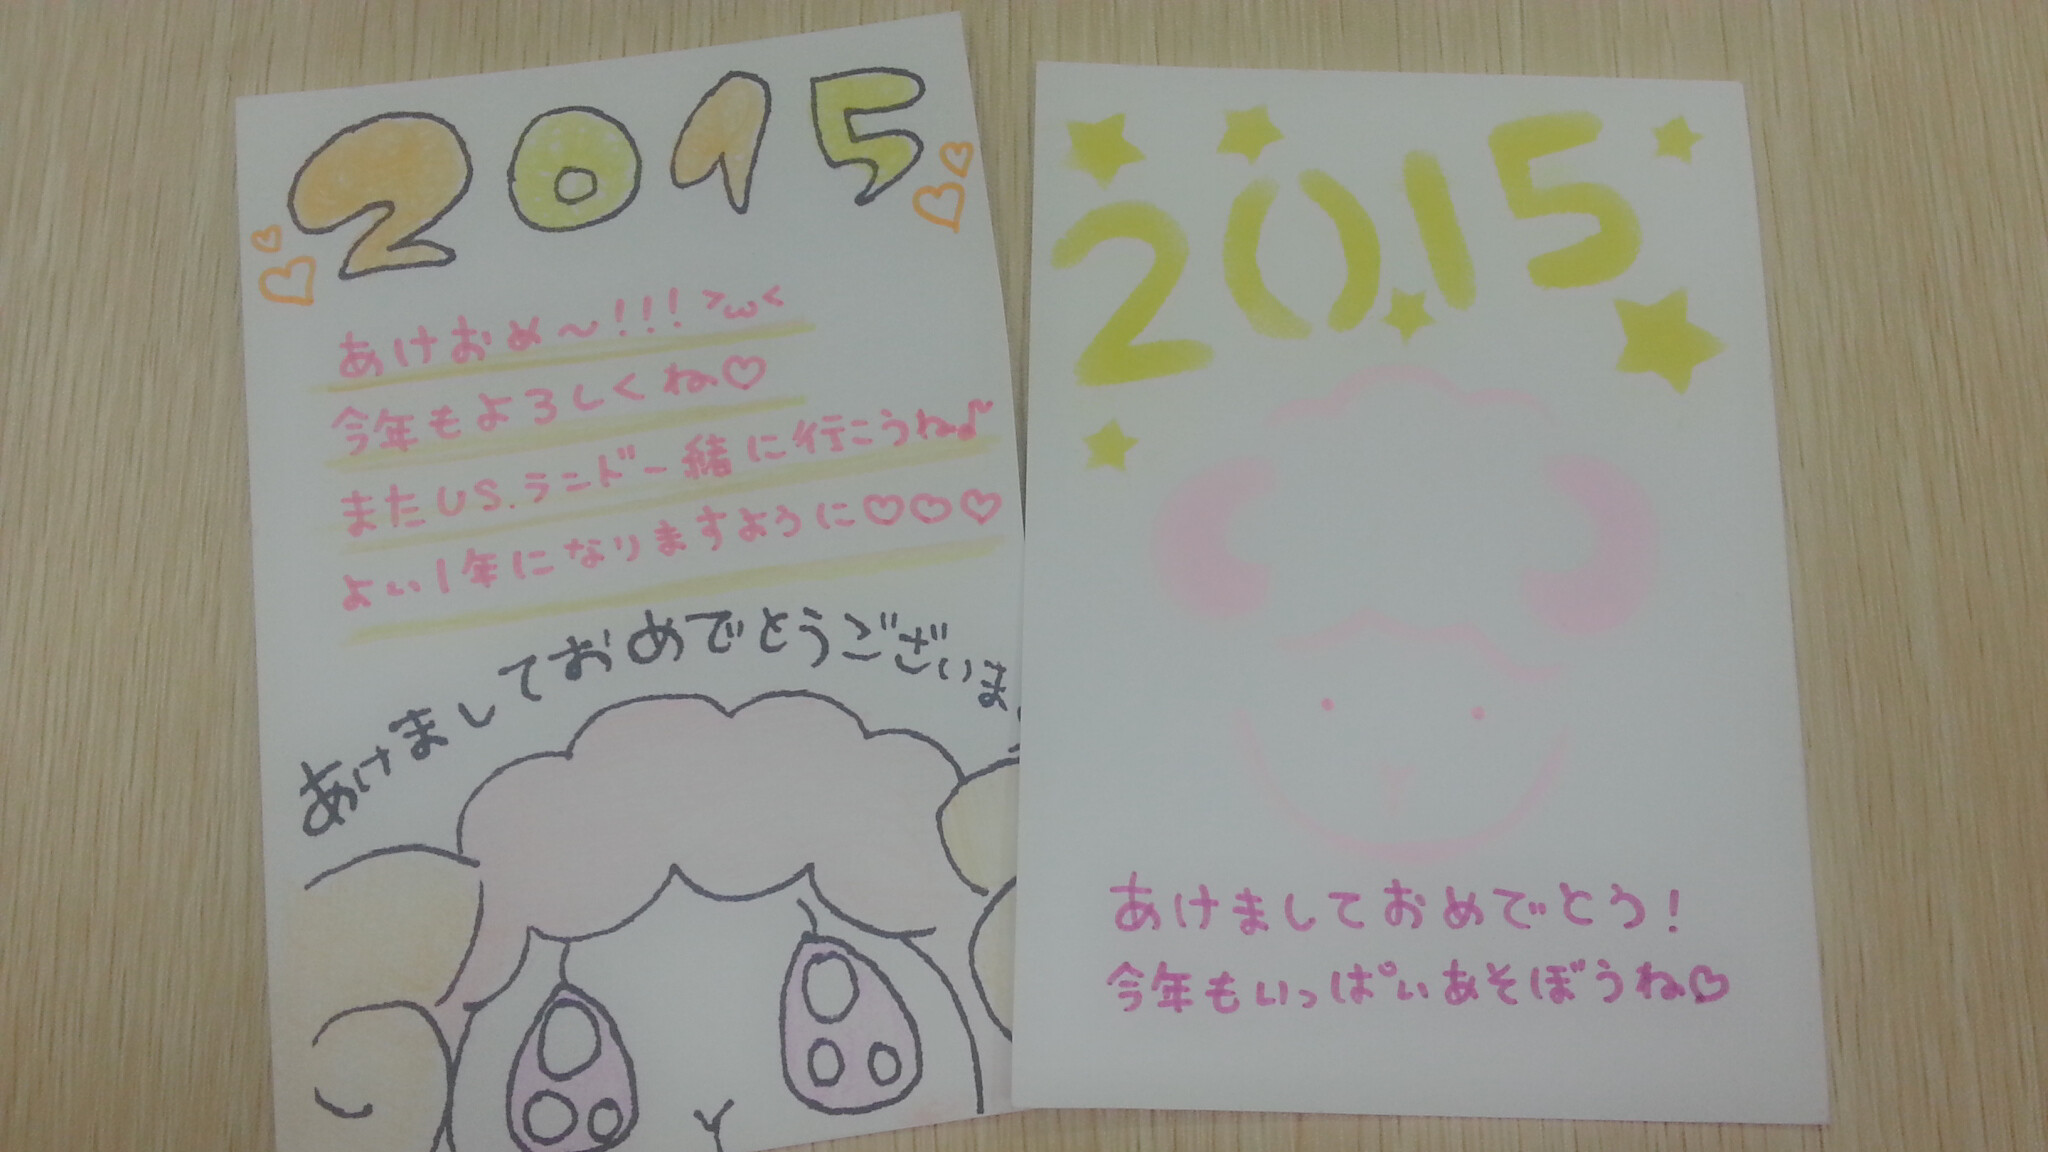 2015
あけおめ〜!!! >ω<
今年もよろしくね♡
またUS.ランド一緒に行こうね♪
よい1年になりますように♡♡♡
あけましておめでとうございま
2015
あけましておめでとう!
今年もいっぱいあそぼうね♡